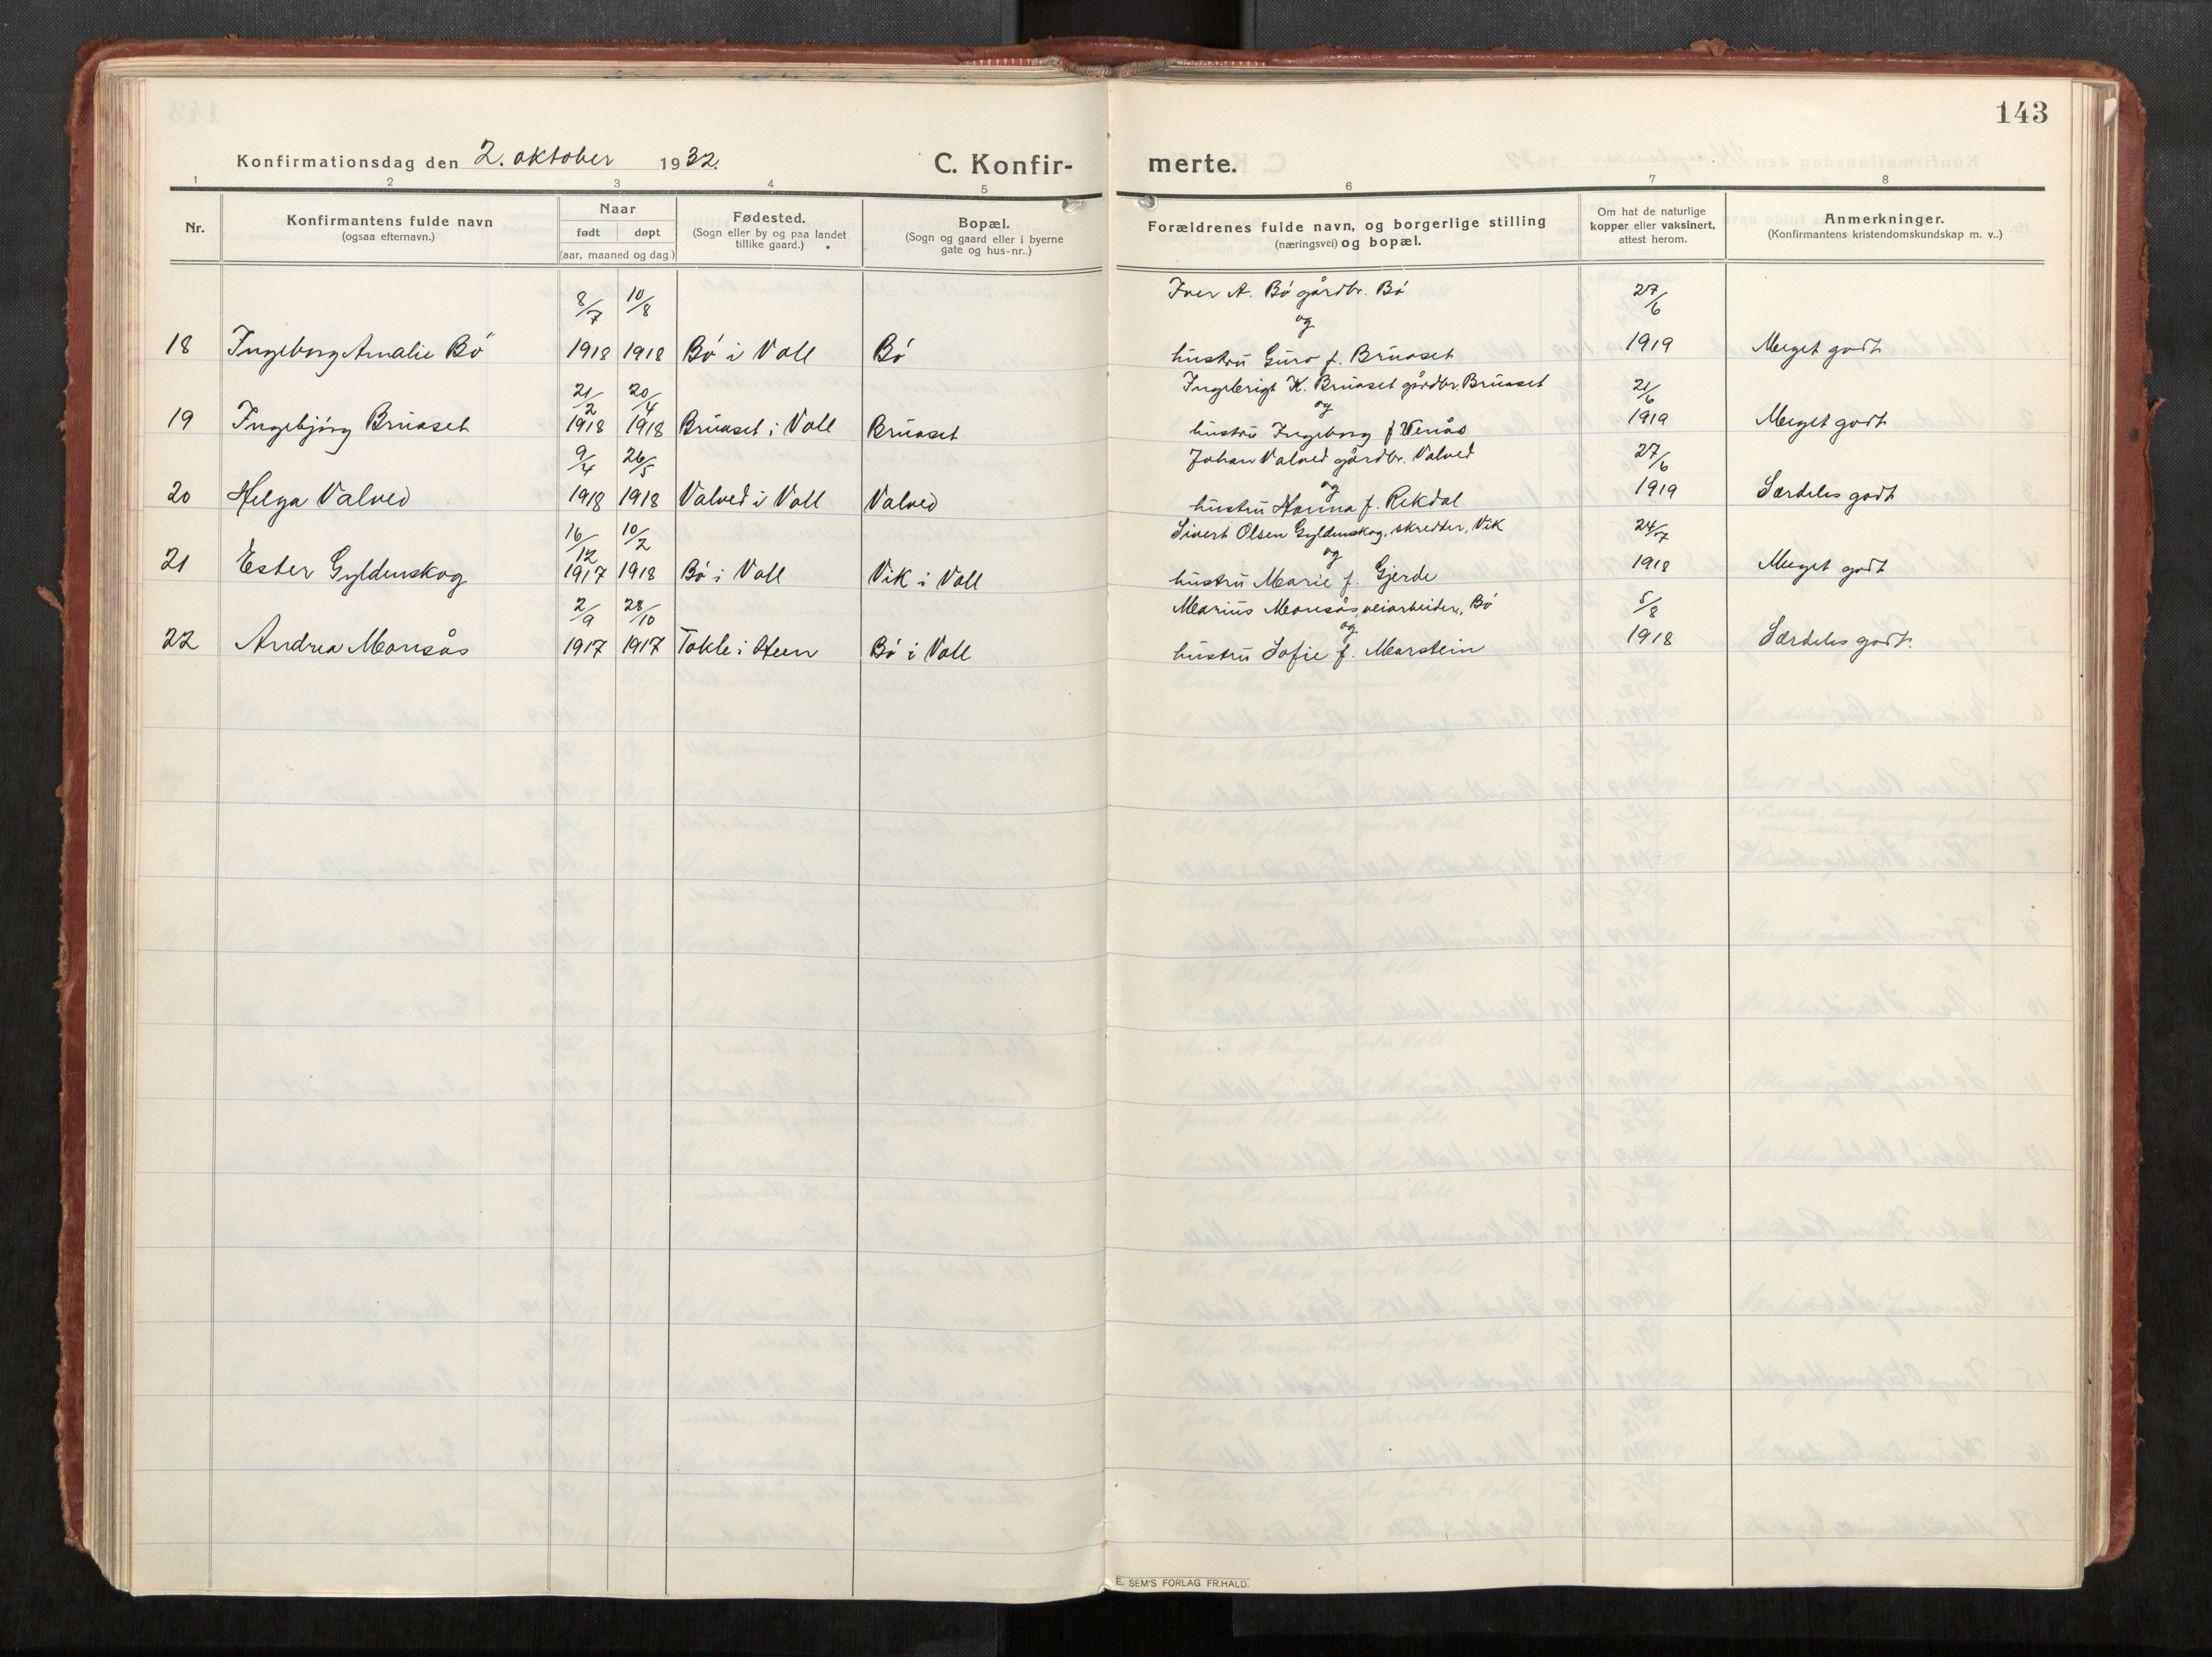 143
Konfirmationsdag den 2. oktober 1932.
C. Konfir- merte.
1 2 3 4 5 6 7 8
Nr.
Konfirmantens fulde navn
(ogsaa efternavn.)
Naar
født døpt
(aar, maaned og dag)
Fødested.
(Sogn eller by og paa landet
tillike gaard.)
Bopæl.
(Sogn og gaard eller i byerne
gate og hus-nr..)
Forældrenes fulde navn, og borgerlige stilling
(næringsvei) og bopæl.
Om hat de naturlige
kopper eller vaksinert,
attest herom.
Anmerkninger.
(Konfirmantens kristendomskundskap m. v..)
8/7 10/8 Iver A. Bø gårdbr. Bø 27/6
og
18 Ingeborg Amalie Bø 1918 1918 Bø i Voll Bø hustru Guro f. Bruaset 1919 Meget godt
21/2 20/4 Ingebrigt K. Bruaset gårdbr. Bruaset 21/6
og
19 Ingebjørg Bruaset 1918 1918 Bruaset i Voll Bruaset hustru Ingeborg f. Venås 1919 Meget godt
9/4 26/5 Johan Valved gårdbr. Valved 27/6
og
20 Helga Valved 1918 1918 Valved i Voll Valved hustru Hanna f. Rekdal 1919 Særdeles godt
16/12 10/2 Sivert Olsen Gyldenskog, skredder, Vik 24/7
og
21 Ester Gyldenskog 1917 1918 Bø i Voll Vik i Voll hustru Marie f. Gjerde 1918 Meget godt
2/9 28/10 Marius Monsås, veiarbeider, Bø 5/8
og
22 Andrea Monsås 1917 1917 Tokle i Heen Bø i Voll hustru Sofie f. Marstein 1918 Særdeles godt.
E. SEM'S FORLAG FR.HALD.